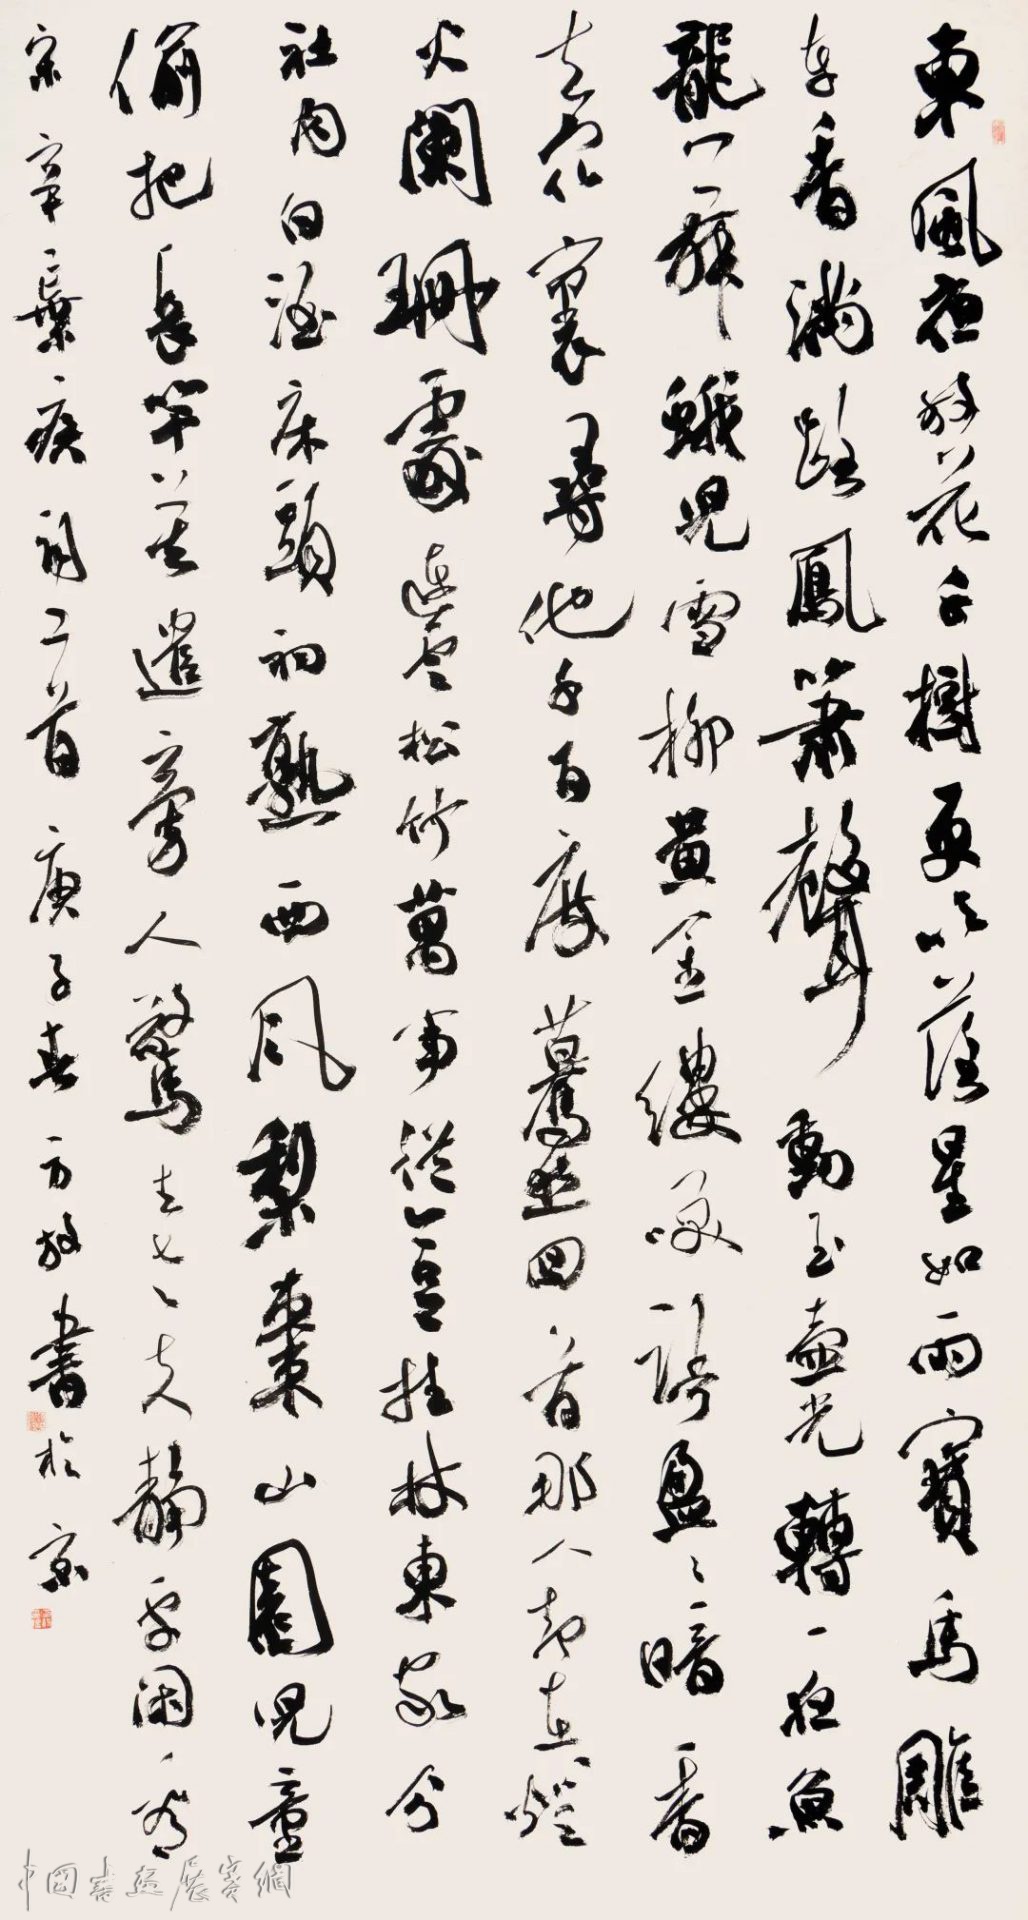 東風夜放花千樹更吹落星如雨寶馬雕
車香滿路鳳簫聲動玉壺光轉一夜魚
龍舞蛾兒雪柳黃金縷笑語盈〻暗香
去眾裏尋他千百度驀然回首那人却在燈
火闌珊處連雲松竹萬事從今足拄杖東家分
社肉白酒床頭初熟西風梨棗山園兒童
偷把長竿莫遣旁人驚去老夫靜處閑看
宋辛棄疾詞二首庚子春方放書於京
中國書畫展賽網